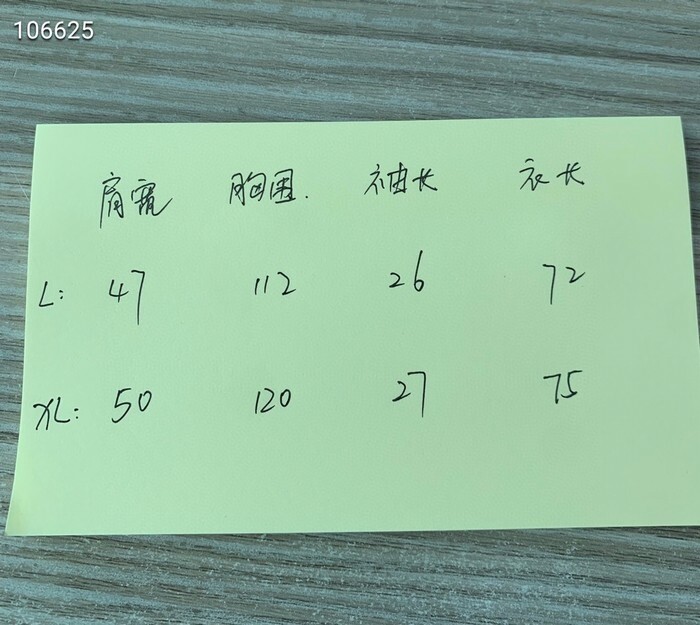 106625
肩宽 胸围. 袖长 衣长
L: 47 112 26 72
XL: 50 120 27 75